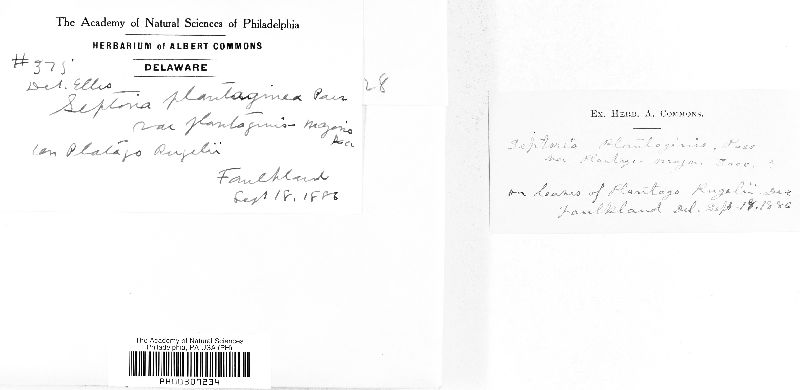 The Academy of Natural Sciences of Philadelphia
HERBARIUM of ALBERT COMMONS
DELAWARE
#375
Det. Ellis
28
Septoria plantaginea Pass
var plantaginis majoris
Sacc
on Platago Rugelii
Faulkland
Sept 18, 1886
The Academy of Natural Sciences
Philadelphia, PA USA (PH)
PH00307234
Ex. Herb. A. Commons.
Septoria Plantaginis, Pass
var Plantag. major. Sacc.
on leaves of Plantago Rugelii
Faulkland Del. Sept 18, 1886